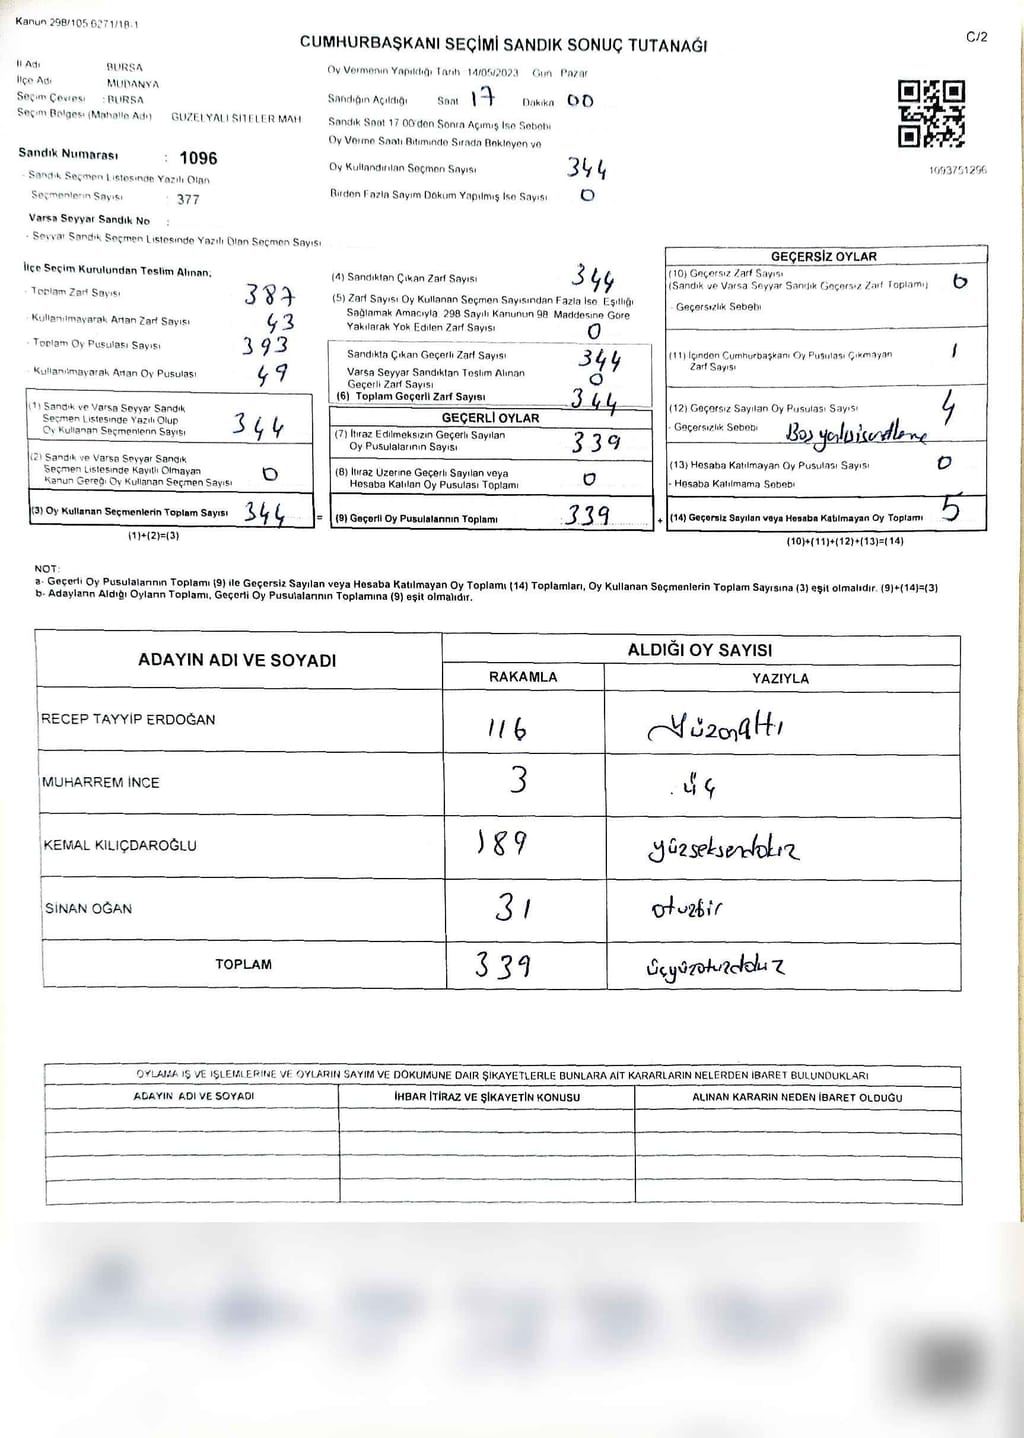 Kanun 298/105 6271/18-1
C/2
CUMHURBAŞKANI SEÇİMİ SANDIK SONUÇ TUTANAĞI
İl Adı BURSA
İlçe Adı MUDANYA
Seçim Çevresi : BURSA
Seçim Bölgesi (Mahalle Adı) GÜZELYALI SİTELER MAH
Sandık Numarası : 1096
- Sandık Seçmen Listesinde Yazılı Olan
Seçmenlerin Sayısı : 377
Varsa Seyyar Sandık No :
- Seyyar Sandık Seçmen Listesinde Yazılı Olan Seçmen Sayısı
Oy Vermenin Yapıldığı Tarih 14/05/2023 Gün Pazar
Sandığın Açıldığı Saat 17 Dakika 00
Sandık Saat 17 00'den Sonra Açımış İse Sebebi
Oy Verme Saati Bitiminde Sırada Bekleyen ve
Oy Kullandırılan Seçmen Sayısı 344
Birden Fazla Sayım Döküm Yapılmış İse Sayısı 0
1093751296
İlçe Seçim Kurulundan Teslim Alınan;
- Toplam Zarf Sayısı 387
- Kullanılmayarak Artan Zarf Sayısı 43
- Toplam Oy Pusulası Sayısı 393
- Kullanılmayarak Artan Oy Pusulası 49
(1) Sandık ve Varsa Seyyar Sandık
Seçmen Listesinde Yazılı Olup
Oy Kullanan Seçmenlerin Sayısı 344
(2) Sandık ve Varsa Seyyar Sandık
Seçmen Listesinde Kayıtlı Olmayan
Kanun Gereği Oy Kullanan Seçmen Sayısı 0
(3) Oy Kullanan Seçmenlerin Toplam Sayısı 344 =
(1)+(2)=(3)
(4) Sandıktan Çıkan Zarf Sayısı 344
(5) Zarf Sayısı Oy Kullanan Seçmen Sayısından Fazla İse Eşitliği
Sağlamak Amacıyla 298 Sayılı Kanunun 98 Maddesine Göre
Yakılarak Yok Edilen Zarf Sayısı 0
Sandıkta Çıkan Geçerli Zarf Sayısı 344
Varsa Seyyar Sandıktan Teslim Alınan
Geçerli Zarf Sayısı 0
(6) Toplam Geçerli Zarf Sayısı 344
GEÇERLİ OYLAR
(7) İtiraz Edilmeksizin Geçerli Sayılan
Oy Pusulalarının Sayısı 339
(8) İtiraz Üzerine Geçerli Sayılan veya
Hesaba Katılan Oy Pusulası Toplamı 0
(9) Geçerli Oy Pusulalarının Toplamı 339 +
GEÇERSİZ OYLAR
(10) Geçersiz Zarf Sayısı 0
(Sandık ve Varsa Seyyar Sandık Geçersiz Zarf Toplamı)
- Geçersizlik Sebebi
(11) İçinden Cumhurbaşkanı Oy Pusulası Çıkmayan
Zarf Sayısı 1
(12) Geçersiz Sayılan Oy Pusulası Sayısı 4
- Geçersizlik Sebebi
(13) Hesaba Katılmayan Oy Pusulası Sayısı 0
- Hesaba Katılmama Sebebi
(14) Geçersiz Sayılan veya Hesaba Katılmayan Oy Toplamı 5
(10)+(11)+(12)+(13)=(14)
NOT:
a- Geçerli Oy Pusulalarının Toplamı (9) ile Geçersiz Sayılan veya Hesaba Katılmayan Oy Toplamı (14) Toplamları, Oy Kullanan Seçmenlerin Toplam Sayısına (3) eşit olmalıdır. (9)+(14)=(3)
b- Adayların Aldığı Oyların Toplamı, Geçerli Oy Pusulalarının Toplamına (9) eşit olmalıdır.
ADAYIN ADI VE SOYADI
ALDIĞI OY SAYISI
RAKAMLA YAZIYLA
RECEP TAYYİP ERDOĞAN 116 Yüzonaltı
MUHARREM İNCE 3 üç
KEMAL KILIÇDAROĞLU 189 yüzseksendokuz
SİNAN OĞAN 31 otuzbir
TOPLAM 339 üçyüzotuzdokuz
OYLAMA İŞ VE İŞLEMLERİNE VE OYLARIN SAYIM VE DÖKÜMÜNE DAİR ŞİKAYETLERLE BUNLARA AİT KARARLARIN NELERDEN İBARET BULUNDUKLARI
ADAYIN ADI VE SOYADI İHBAR İTİRAZ VE ŞİKAYETİN KONUSU ALINAN KARARIN NEDEN İBARET OLDUĞU